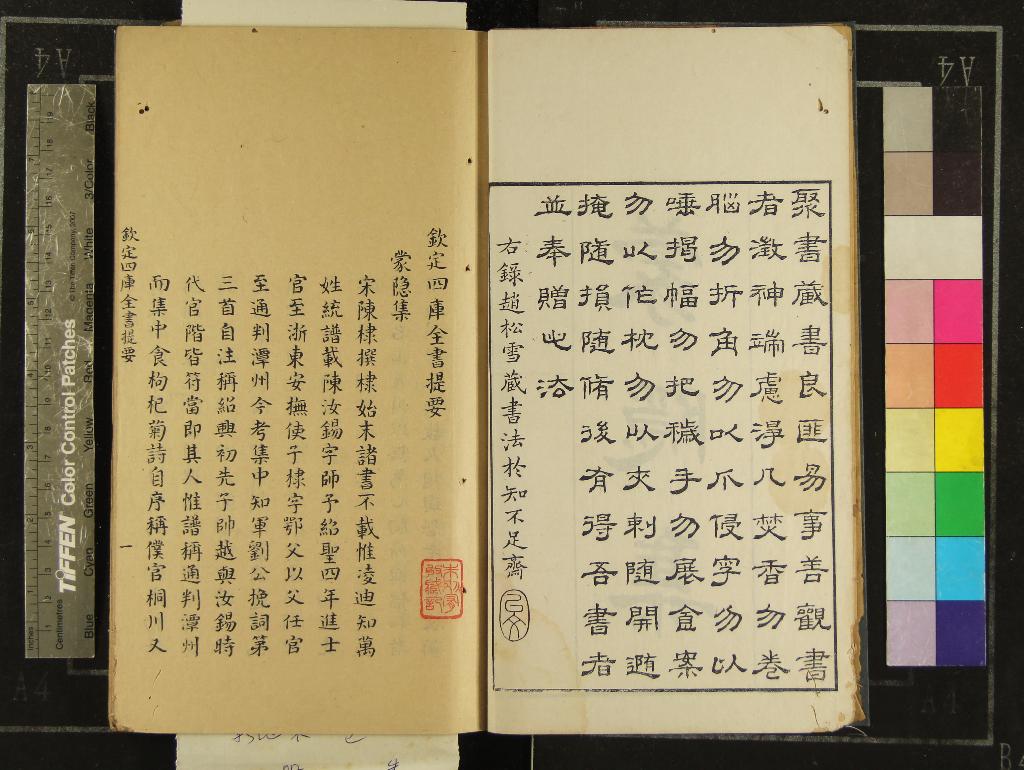 聚書藏書良匪易事善觀書
者澂神端慮淨几焚香勿卷
腦勿折角勿以爪侵字勿以
唾揭幅勿把穢手勿展食案
勿以作枕勿以夾刺隨開隨
掩隨損隨脩後有得吾書者
並奉贈此法
右錄趙松雪藏書法於知不足齋
欽定四庫全書提要
蒙隐集
宋陳棣撰棣始末諸書不載惟凌迪知萬
姓統譜載陳汝錫字師予紹聖四年進士
官至浙東安撫使子棣字鄂父以父任官
至通判潭州今考集中知軍劉公挽詞第
三首自注稱紹興初先子帥越與汝錫時
代官階皆符當即其人惟譜稱通判潭州
而集中食枸杞菊詩自序稱僕官桐川又
欽定四庫全書提要
一
TIFFEN Color Control Patches
© The Tiffen Company, 2007
Inches
Centimetres
Blue
Cyan
Green
Yellow
Red
Magenta
White
3/Color
Black
A4
A4
A4
A4